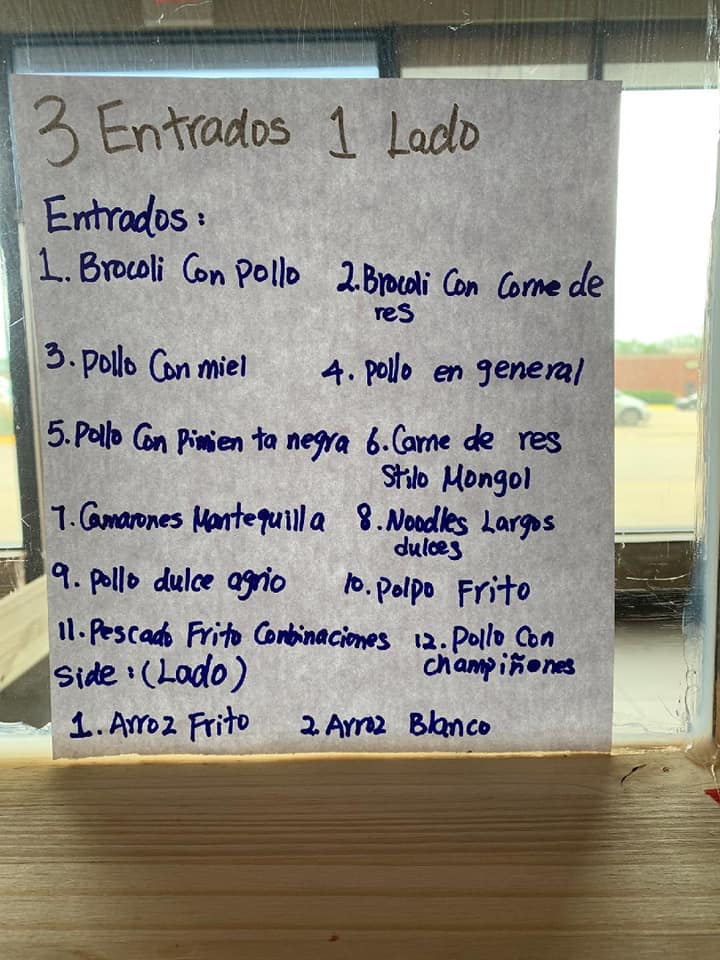 3 Entrados 1 Lado
Entrados:
1. Brocoli Con Pollo 2. Brocoli Con Carne de
res
3. Pollo Con miel 4. Pollo en general
5. Pollo Con Pimien ta negra 6. Carne de res
Stilo Mongol
7. Camarones Mantequilla 8. Noodles Largos
dulces
9. Pollo dulce agrio 10. Polpo Frito
11. Pescado Frito Conbinaciones 12. Pollo Con
champiñones
Side: (Lado)
1. Arroz Frito 2. Arroz Blanco